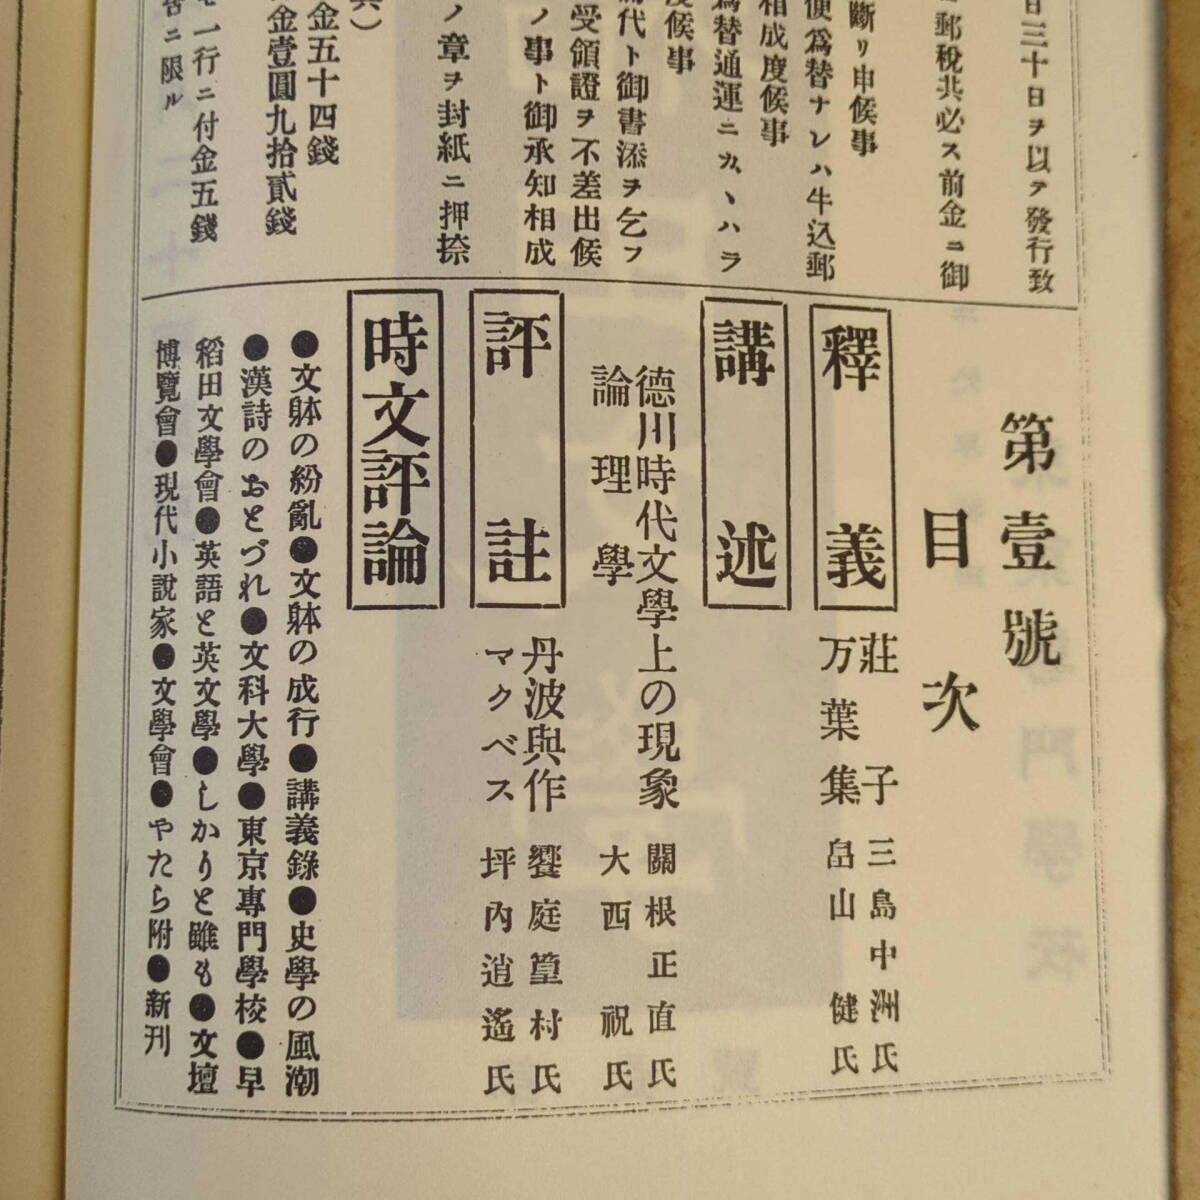 日三十日ヲ以テ發行致
郵稅共必ス前金ニ御
斷リ申候事
便爲替ナレハ牛込郵
相成度候事
爲替通運ニカヽハラ
度候事
代ト御書添ヲ乞フ
受領證ヲ不差出候
ノ事ト御承知相成
ノ章ヲ封紙ニ押捺
金五十四錢
金壹圓九拾貳錢
一行ニ付金五錢
ニ限ル
第壹號
目次
釋義
莊子 三島中洲氏
万葉集 畠山健氏
講述
德川時代文學上の現象 關根正直氏
論理學 大西祝氏
評註
丹波與作 饗庭篁村氏
マクベス 坪內逍遙氏
時文評論
●文躰の紛亂●文躰の成行●講義錄●史學の風潮
●漢詩のおとづれ●文科大學●東京專門學校●早
稻田文學會●英語と英文學●しかりと雖も●文壇
博覽會●現代小說家●文學會●やたら附●新刊